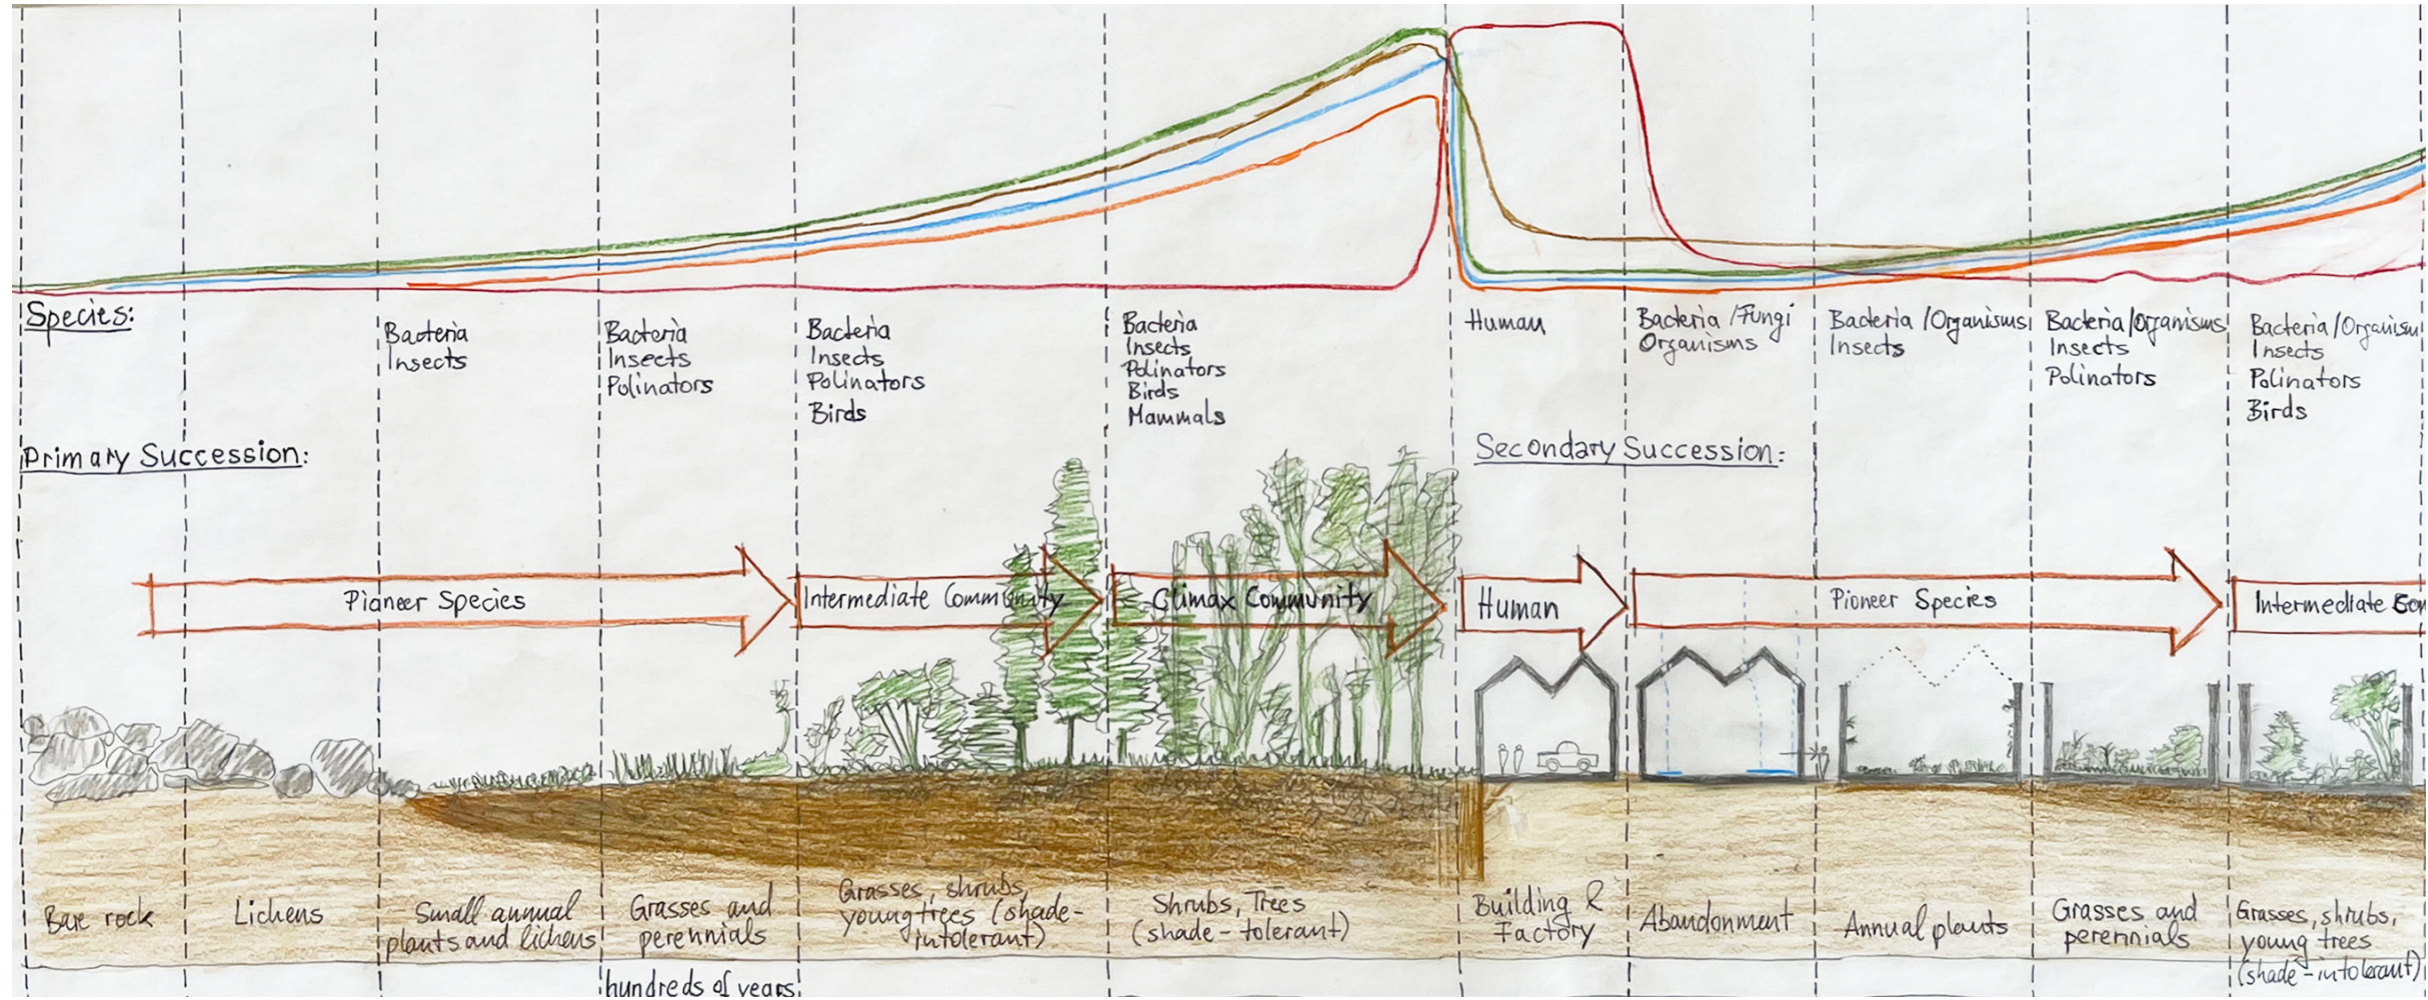 Species:
Bacteria
Insects
Bacteria
Insects
Polinators
Bacteria
Insects
Polinators
Birds
Bacteria
Insects
Polinators
Birds
Mammals
Human
Bacteria /Fungi
Organisms
Bacteria /Organisms
Insects
Bacteria/Organisms
Insects
Polinators
Bacteria/Organism
Insects
Polinators
Birds
Primary Succession:
Secondary Succession:
Pioneer Species
Intermediate Community
Climax Community
Human
Pioneer Species
Intermediate Com
Bare rock
Lichens
Small annual
plants and lichens
Grasses and
perennials
Grasses, shrubs,
young trees (shade-
intolerant)
Shrubs, Trees
(shade-tolerant)
Building &
Factory
Abandonment
Annual plants
Grasses and
perennials
Grasses, shrubs,
young trees
(shade-intolerant)
hundreds of years